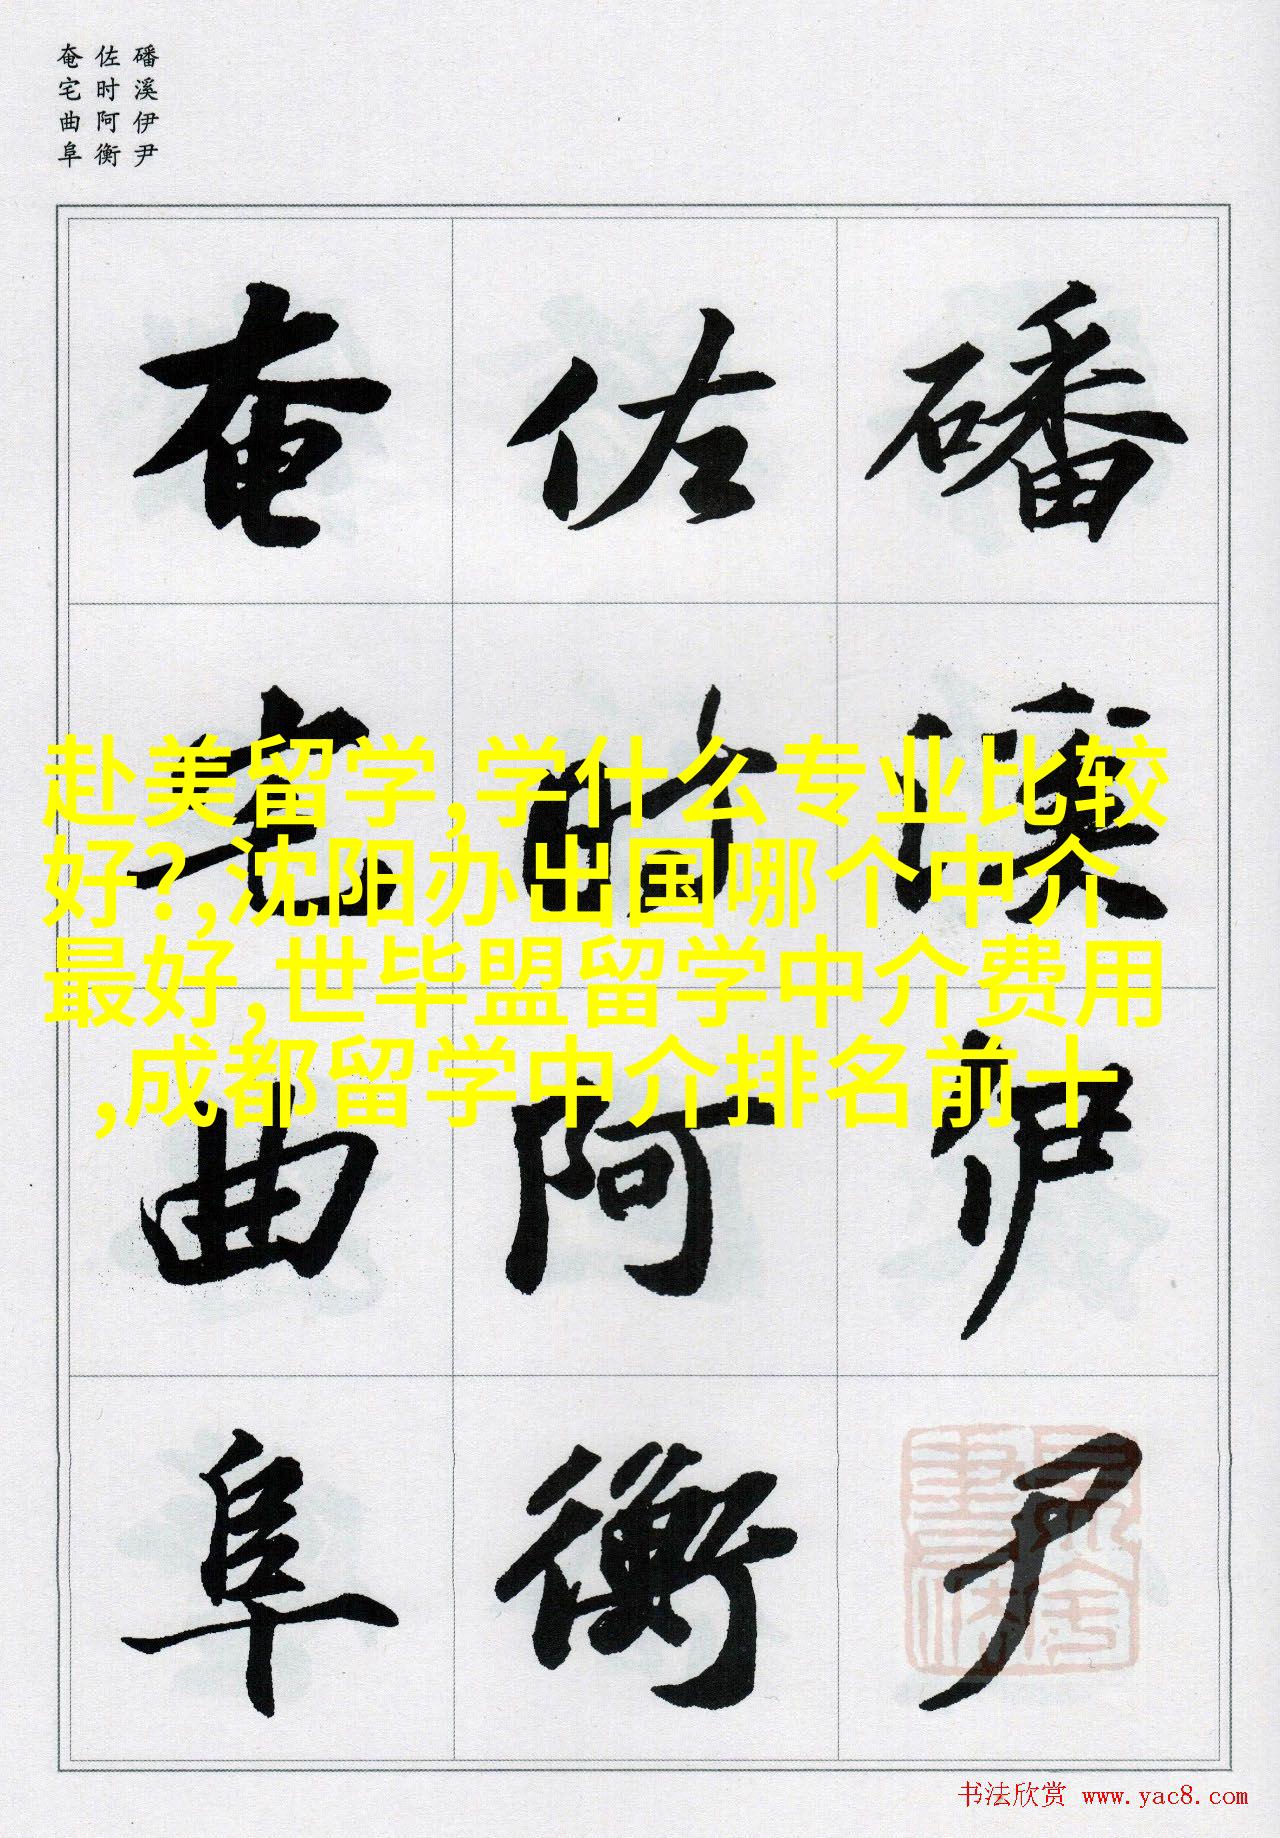 磻溪伊尹
佐时阿衡
奄宅曲阜
磻溪伊尹
佐时阿衡
奄宅曲阜
赴美留学,学什么专业比较
好?,沈阳办出国哪个中介
最好,世毕盟留学中介费用
,成都留学中介排名前十
书法欣赏 www.yac8.com